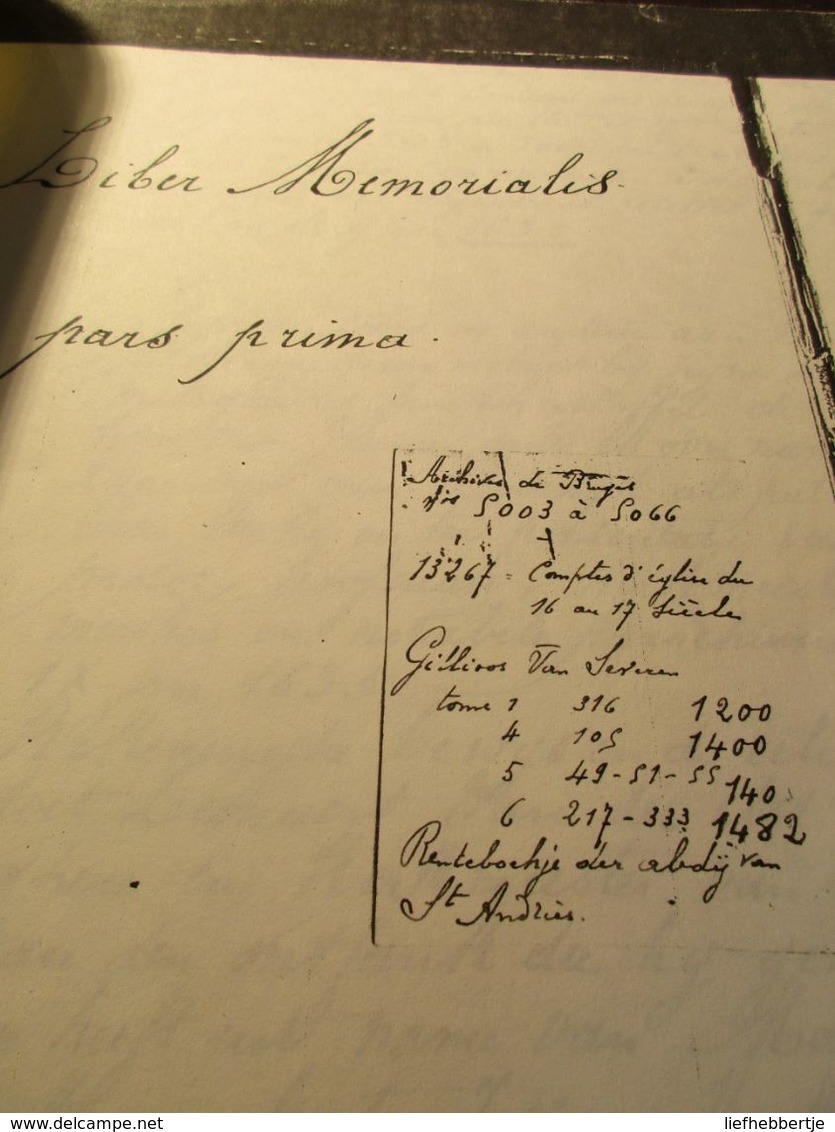 Liber Memorialis.
pars prima.
Archives de Bruges
nos 5003 à 5066
13267 = Comptes d'église du
16 au 17 siècle
Gilliots Van Severen
tome 1 316 1200
4 105 1400
5 49-51-55 140
6 217-333 1482
Renteboekje der abdij van
St Andries.
www.delcampe.net
liefhebbertje